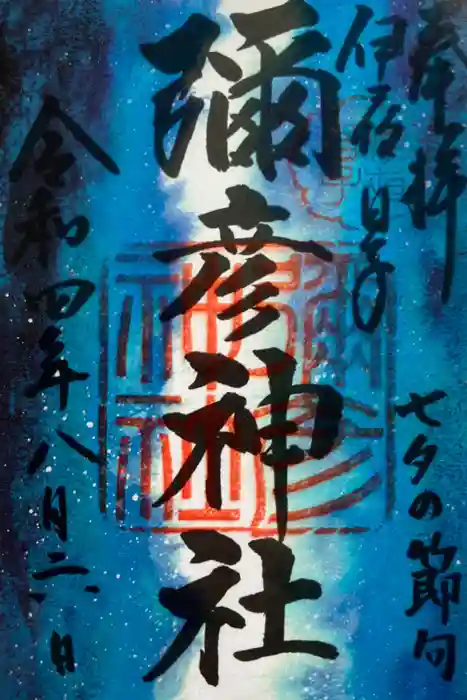 奉拝
七夕の節句
伊夜日子
彌彦神社
令和四年八月六日